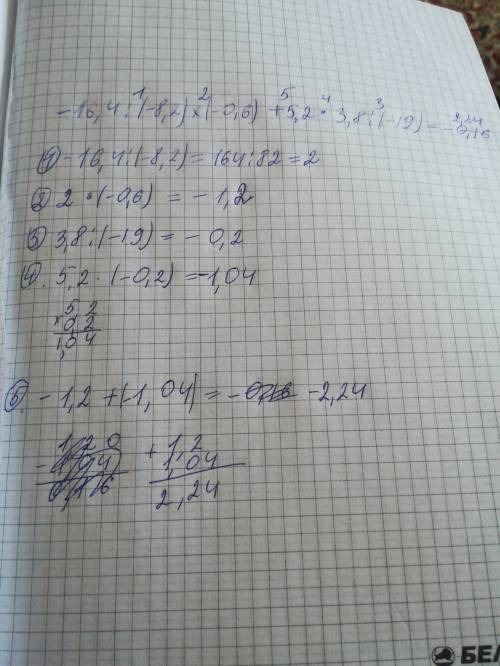 1 2 5 4 3
-16,4:(-8,2)×(-0,6)+5,2·3,8:(-19)=-2,24
① -16,4:(-8,2)=164:82=2
② 2·(-0,6)=-1,2
③ 3,8:(-19)=-0,2
④. 5,2·(-0,2)=-1,04
5 2
×0,2
1,04
⑤. -1,2+(-1,04)=-0,16 -2,24
1,20 + 1,2
-1,04 1,04
0,16 2,24
БЕЛ